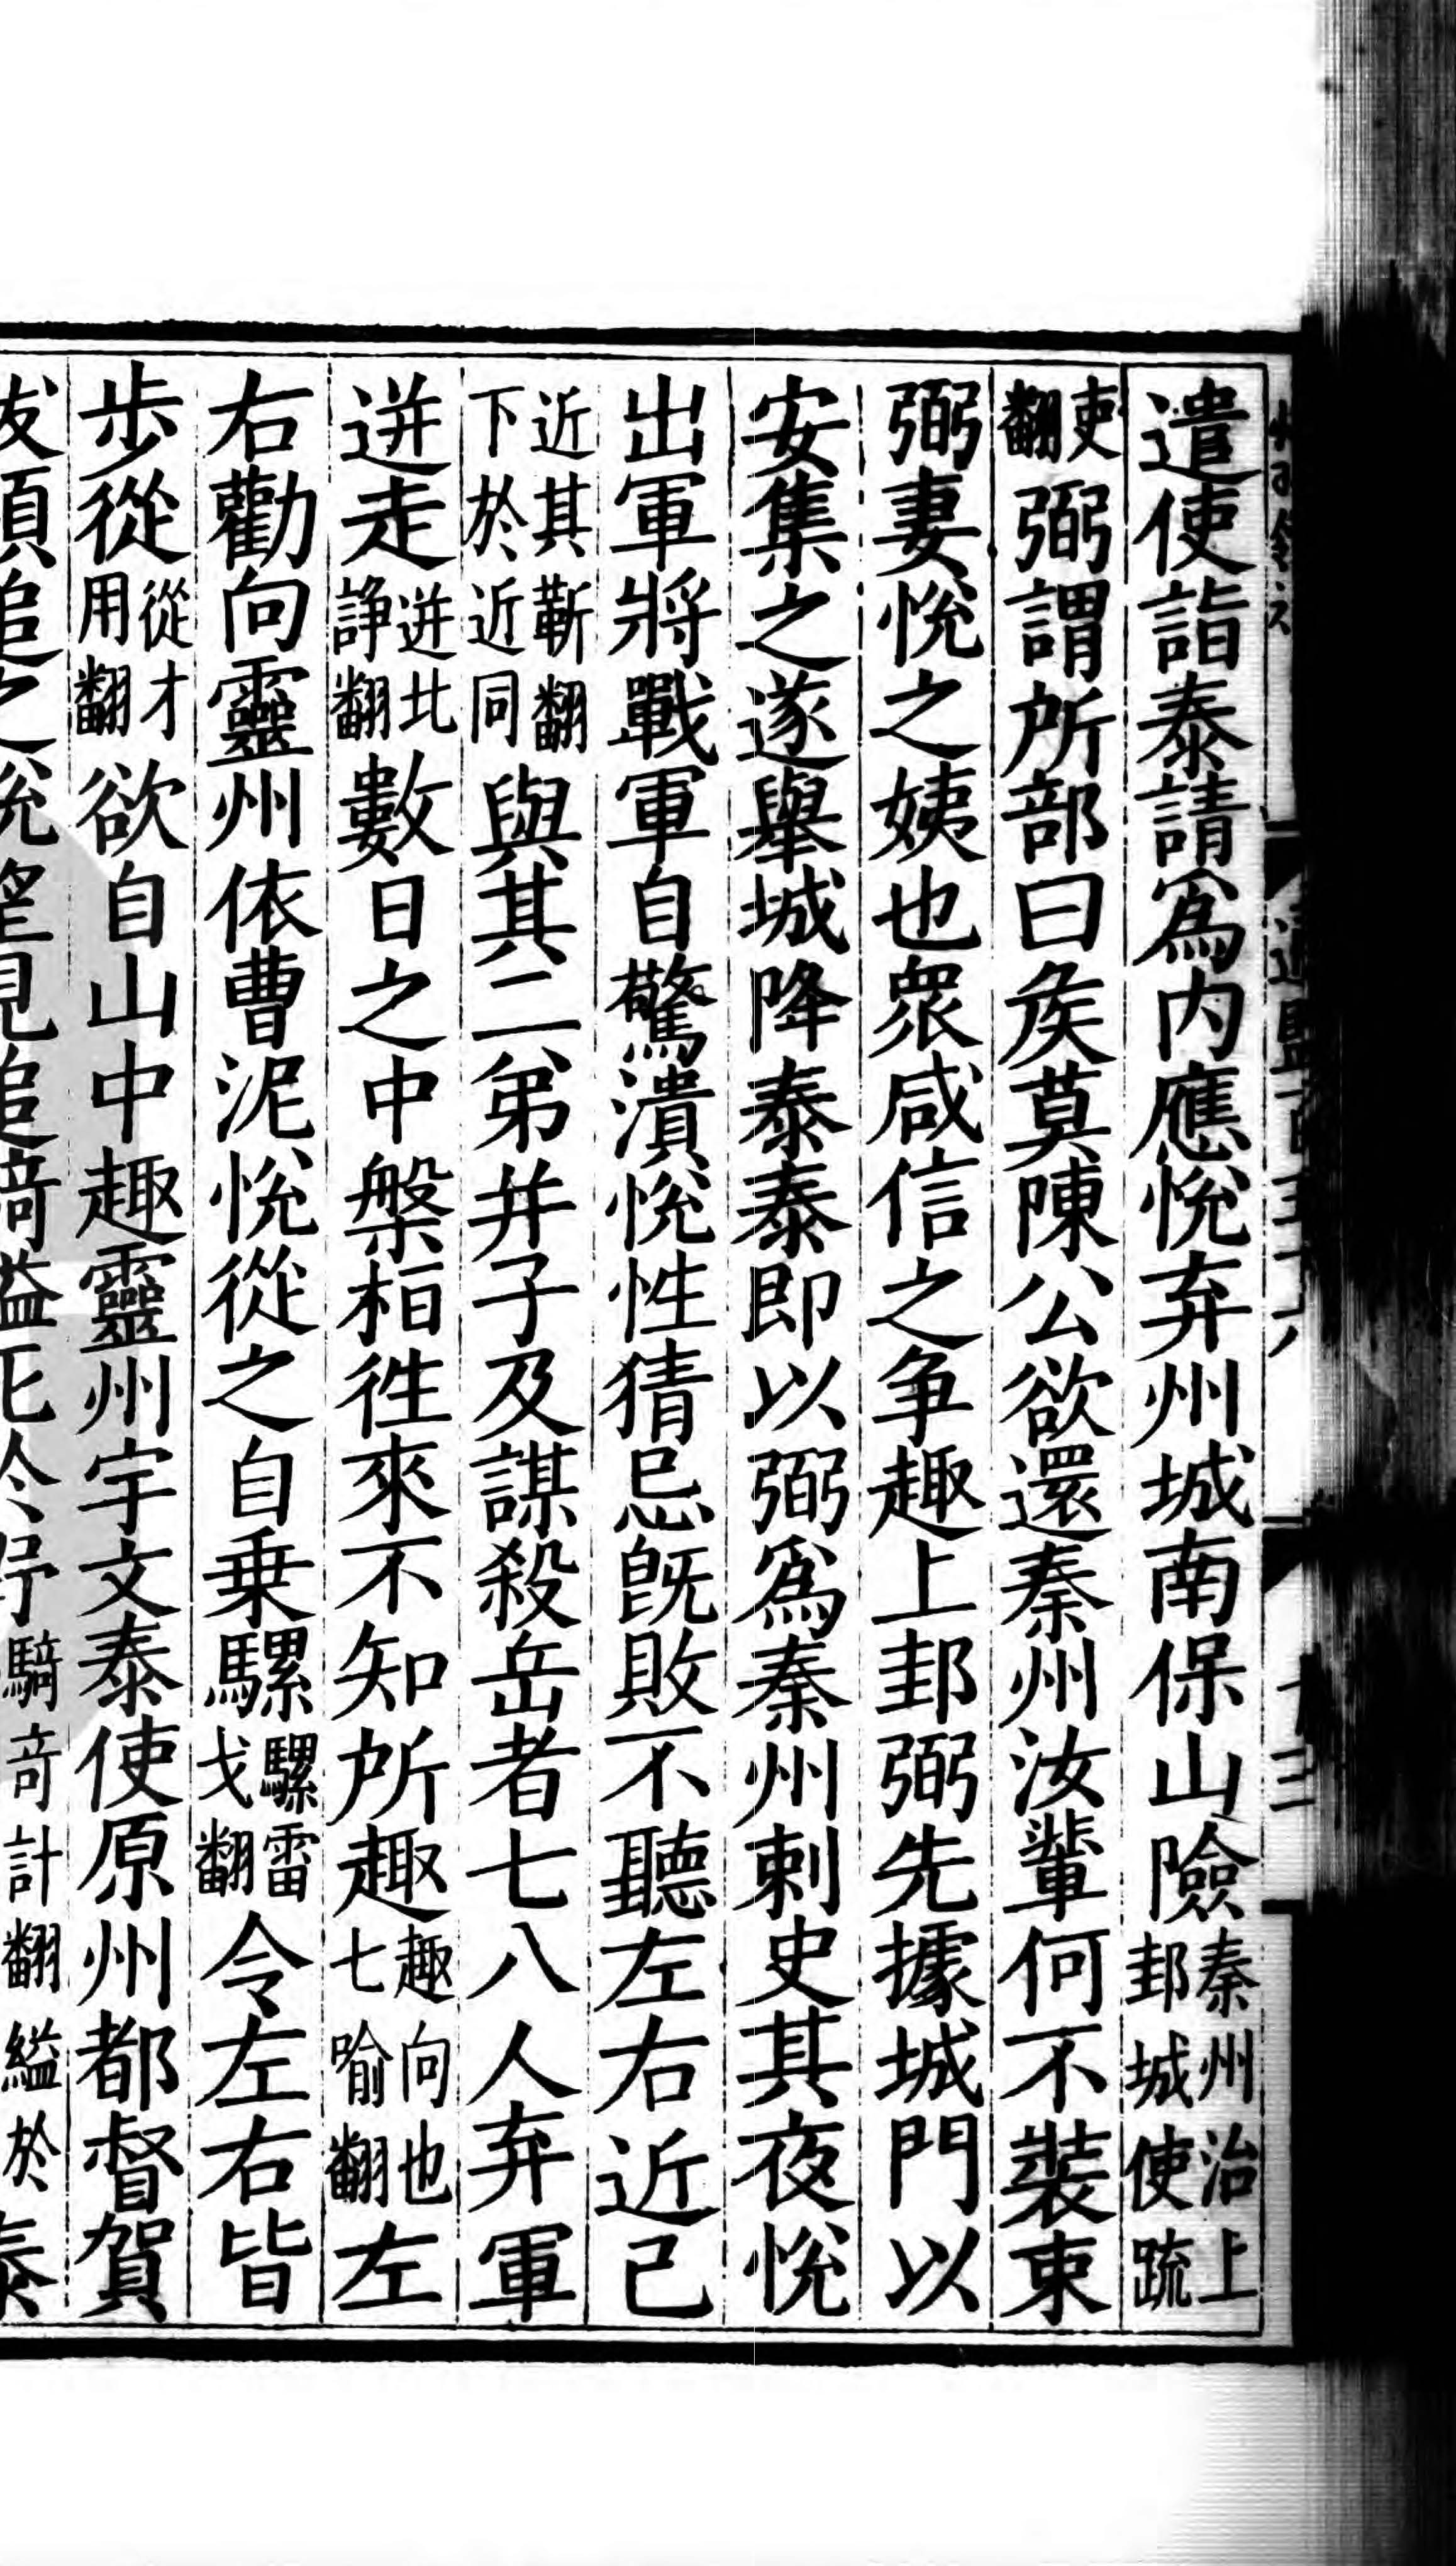 遣使詣泰請爲内應悅弃州城南保山險秦州治上邽城使疏
吏翻弼謂所部曰矦莫陳公欲還秦州汝輩何不裝束
弼妻悅之姨也衆咸信之争趣上邽弼先據城門以
安集之遂舉城降泰泰即以弼爲秦州刺史其夜悅
出軍將戰軍自驚潰悅性猜忌旣敗不聽左右近己
近其靳翻下於近同與其二弟并子及謀殺岳者七八人弃軍
迸走迸北諍翻數日之中槃桓徃來不知所趣趣向也七喻翻左
右勸向靈州依曹泥悅從之自乗騾騾雷戈翻令左右皆
步從從才用翻欲自山中趣靈州宇文泰使原州都督賀
拔頴追之悅望見追騎縊死於野騎奇計翻縊於泰